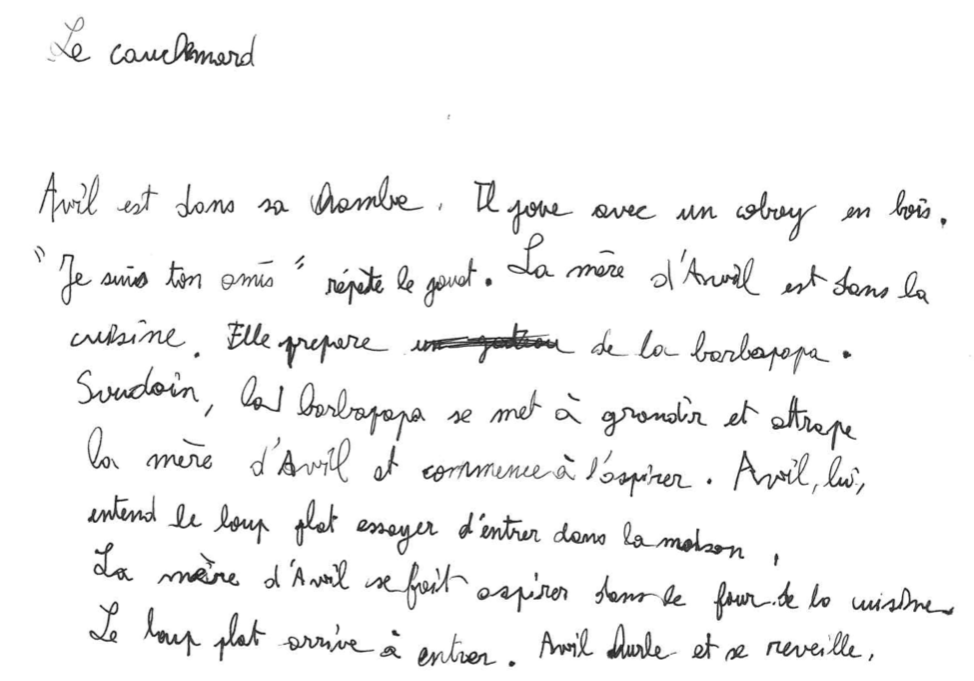 Le cauchemard
Avril est dans sa chambe. Il joue avec un coboy en bois.
"Je suis ton amis" répète le jouet. La mère d'Avril est dans la
cuisine. Elle prepare de la barbapapa.
Soudain, la barbapapa se met à grandir et attrape
la mère d'Avril et commence à l'aspirer. Avril, lui,
entend le loup plat essayer d'entrer dans la maison,
La mère d'Avril se fait aspirer dans le four de la cuisine.
Le loup plat arrive à entrer. Avril hurle et se reveille,